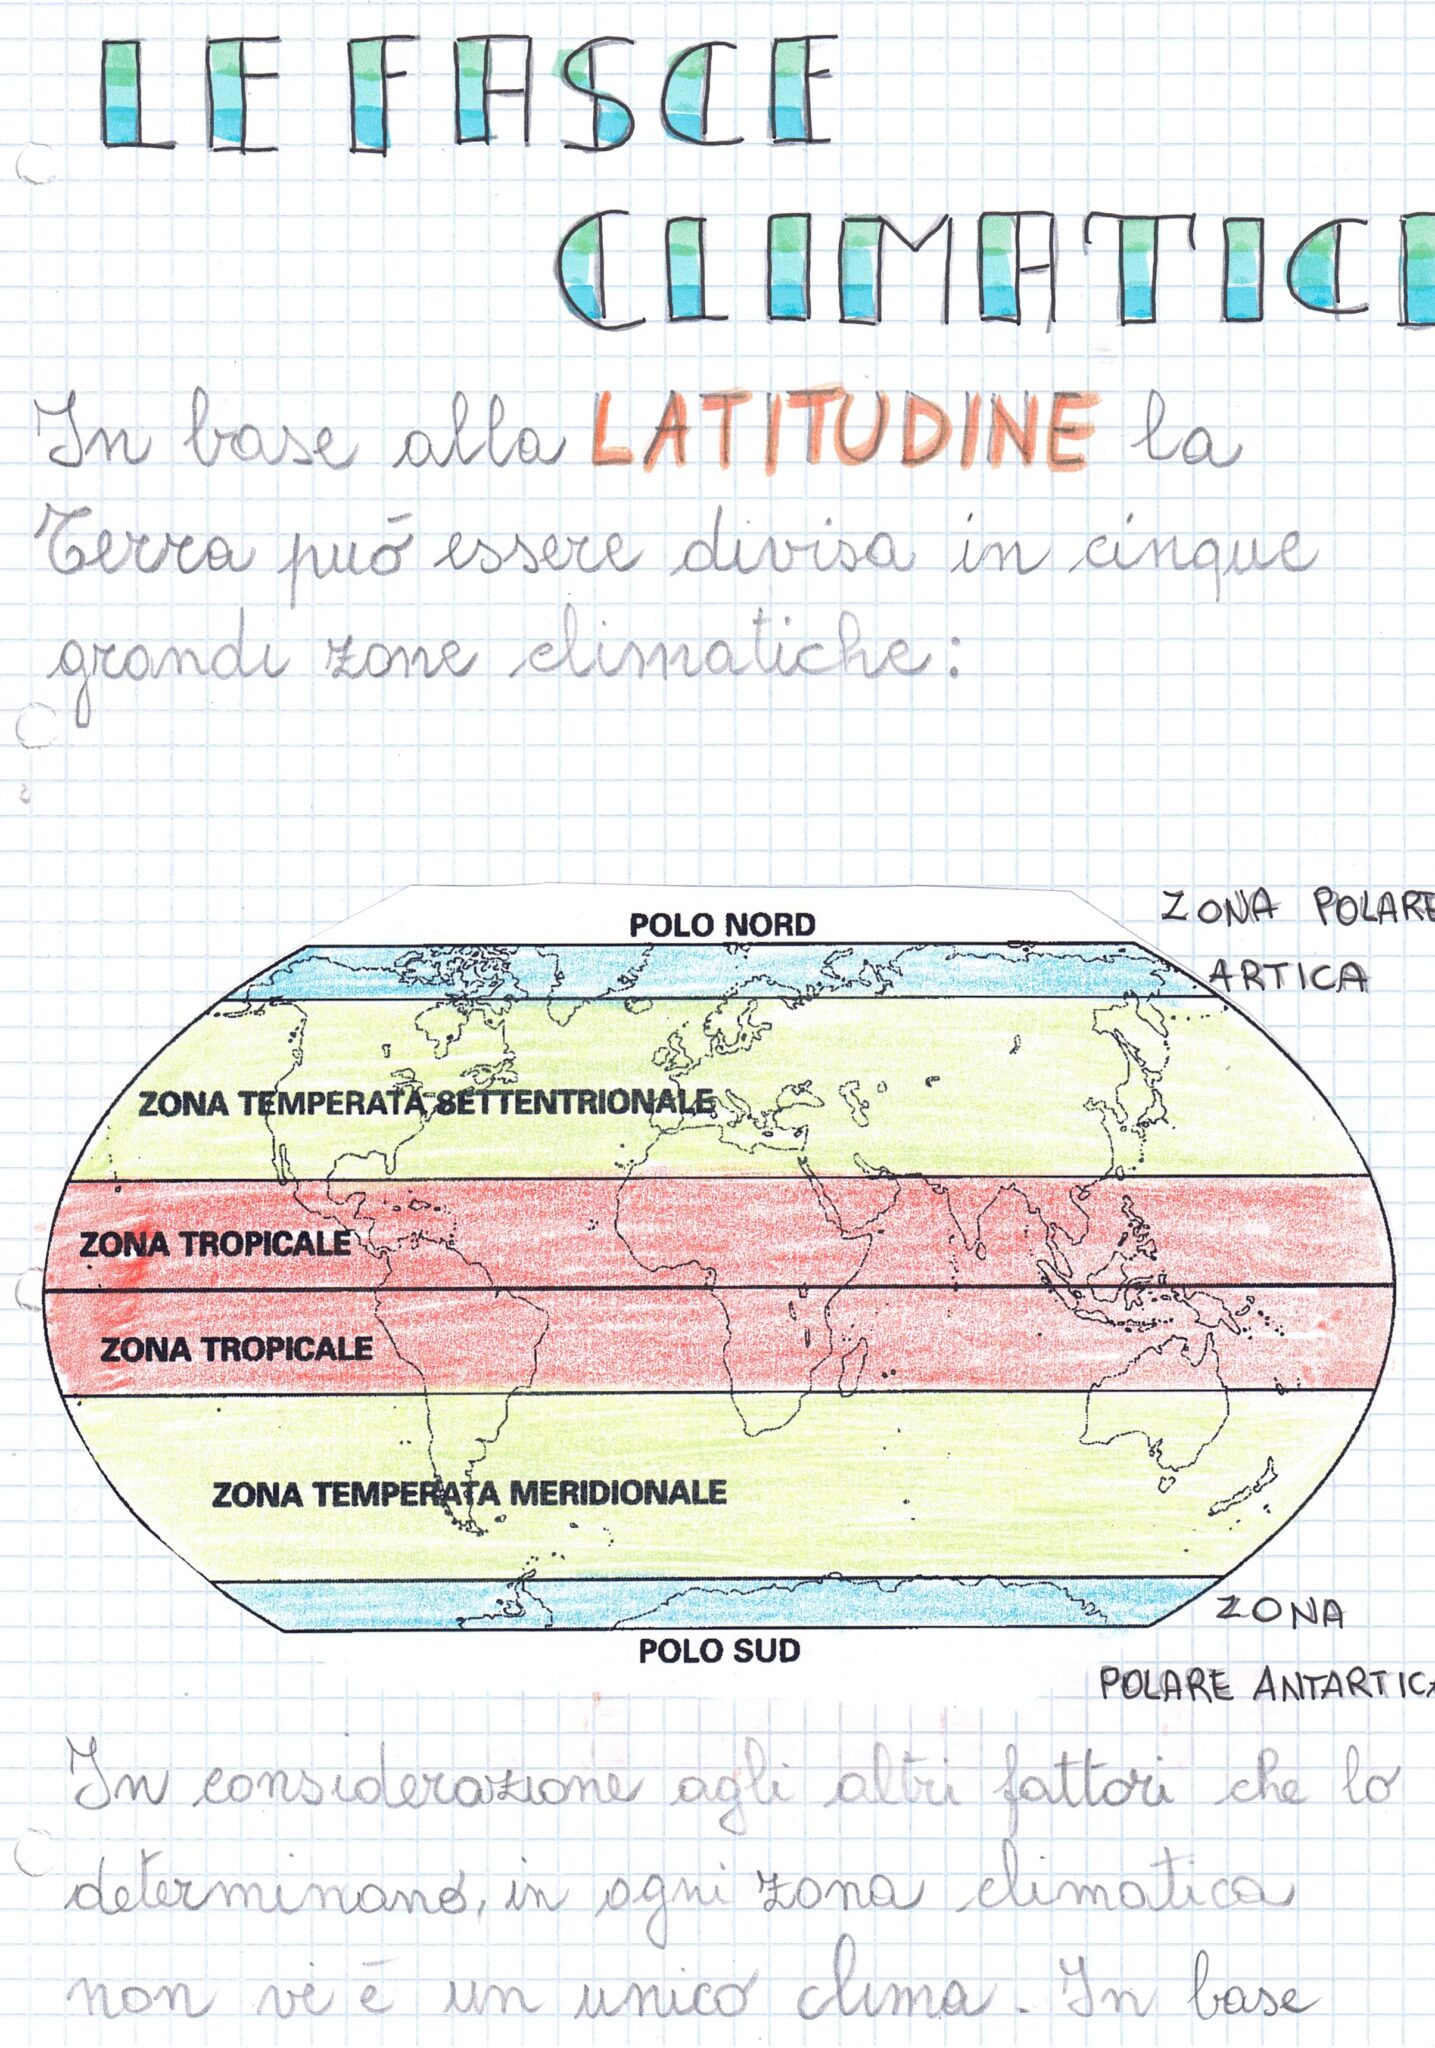 LE FASCE
CLIMATICE
In base alla LATITUDINE la
Terra può essere divisa in cinque
grandi zone climatiche:
POLO NORD
ZONA POLARE
ARTICA
ZONA TEMPERATA SETTENTRIONALE
ZONA TROPICALE
ZONA TROPICALE
ZONA TEMPERATA MERIDIONALE
ZONA
POLO SUD
POLARE ANTARTICA
In considerazione agli altri fattori che lo
determinano, in ogni zona climatica
non vi è un unico clima. In base